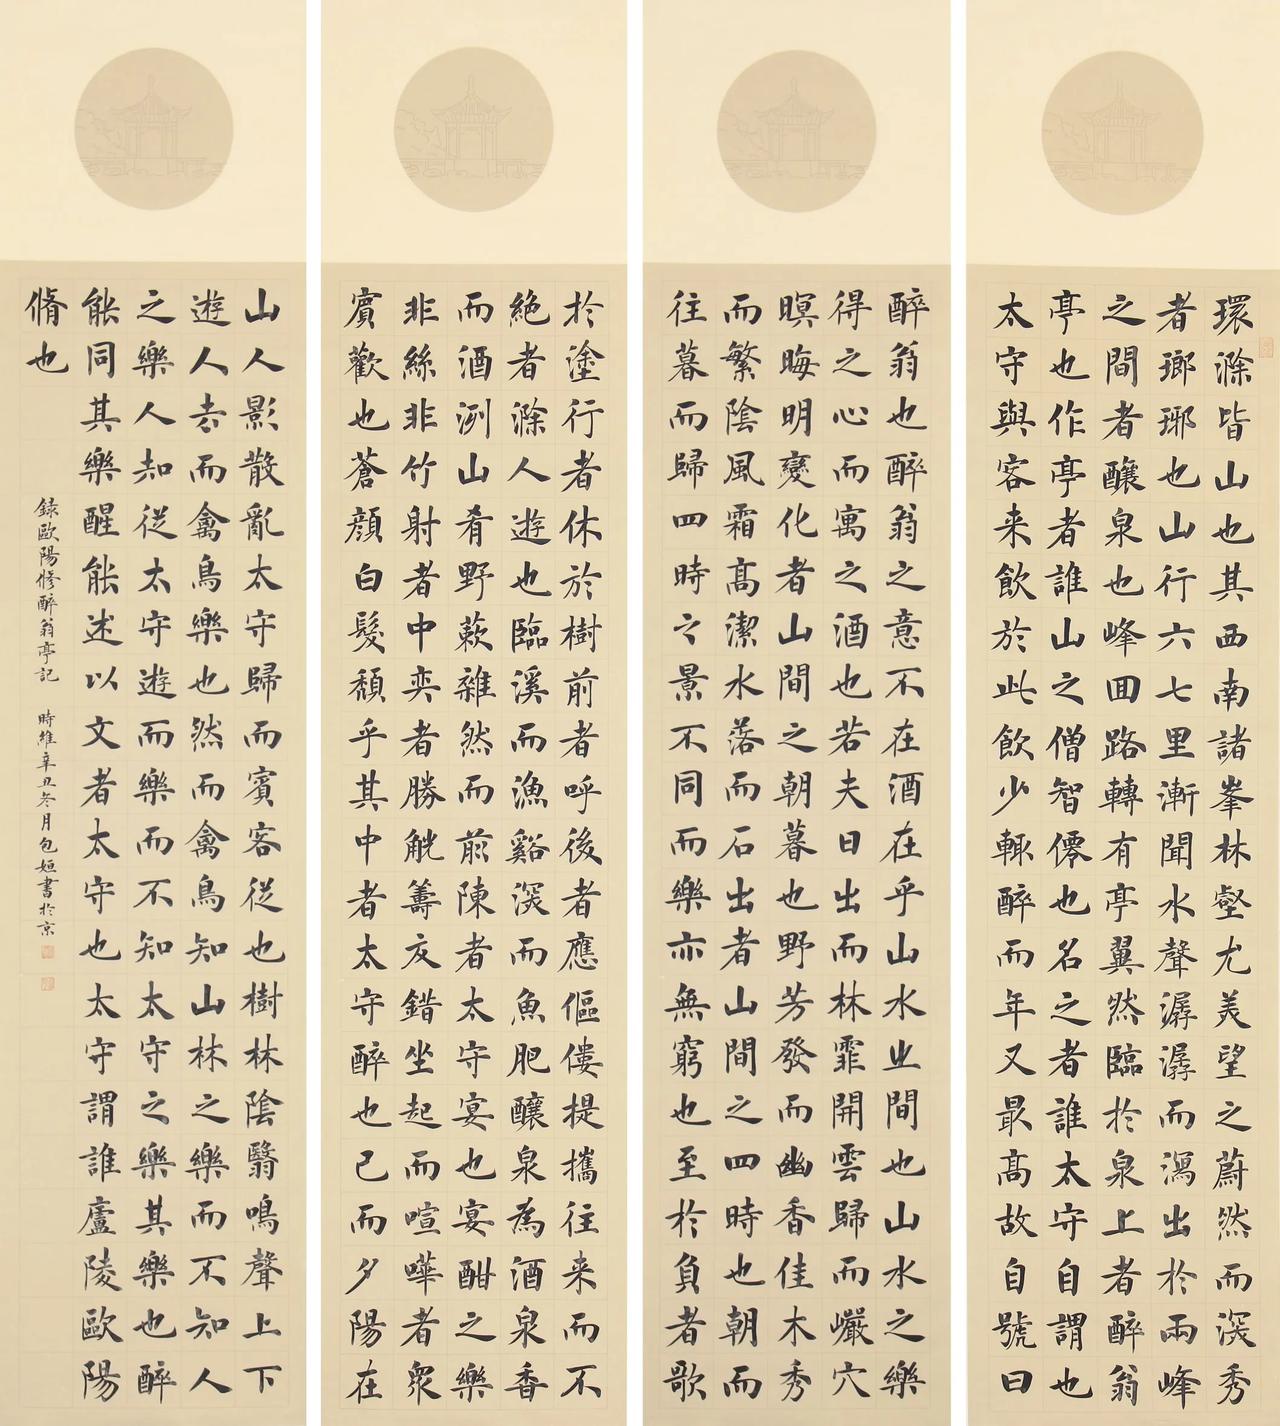 環滁皆山也其西南諸峯林壑尤美望之蔚然而深秀
者瑯琊也山行六七里漸聞水聲潺潺而瀉出於兩峰
之間者釀泉也峰回路轉有亭翼然臨於泉上者醉翁
亭也作亭者誰山之僧智僊也名之者誰太守自謂也
太守與客来飲於此飲少輒醉而年又最高故自號曰
醉翁也醉翁之意不在酒在乎山水之間也山水之樂
得之心而寓之酒也若夫日出而林霏開雲歸而巖穴
暝晦明變化者山間之朝暮也野芳發而幽香佳木秀
而繁陰風霜高潔水落而石出者山間之四時也朝而
往暮而歸四時之景不同而樂亦無窮也至於負者歌
於塗行者休於樹前者呼後者應傴僂提攜往来而不
絶者滁人遊也臨溪而漁谿深而魚肥釀泉為酒泉香
而酒洌山肴野蔌雜然而前陳者太守宴也宴酣之樂
非絲非竹射者中弈者勝觥籌交錯坐起而喧嘩者衆
賓歡也蒼顔白髮頹乎其中者太守醉也已而夕陽在
山人影散亂太守歸而賓客從也樹林陰翳鳴聲上下
遊人去而禽鳥樂也然而禽鳥知山林之樂而不知人
之樂人知從太守遊而樂而不知太守之樂其樂也醉
能同其樂醒能述以文者太守也太守謂誰廬陵歐陽
脩也
錄歐陽修醉翁亭記 時維辛丑冬月包姮書於京